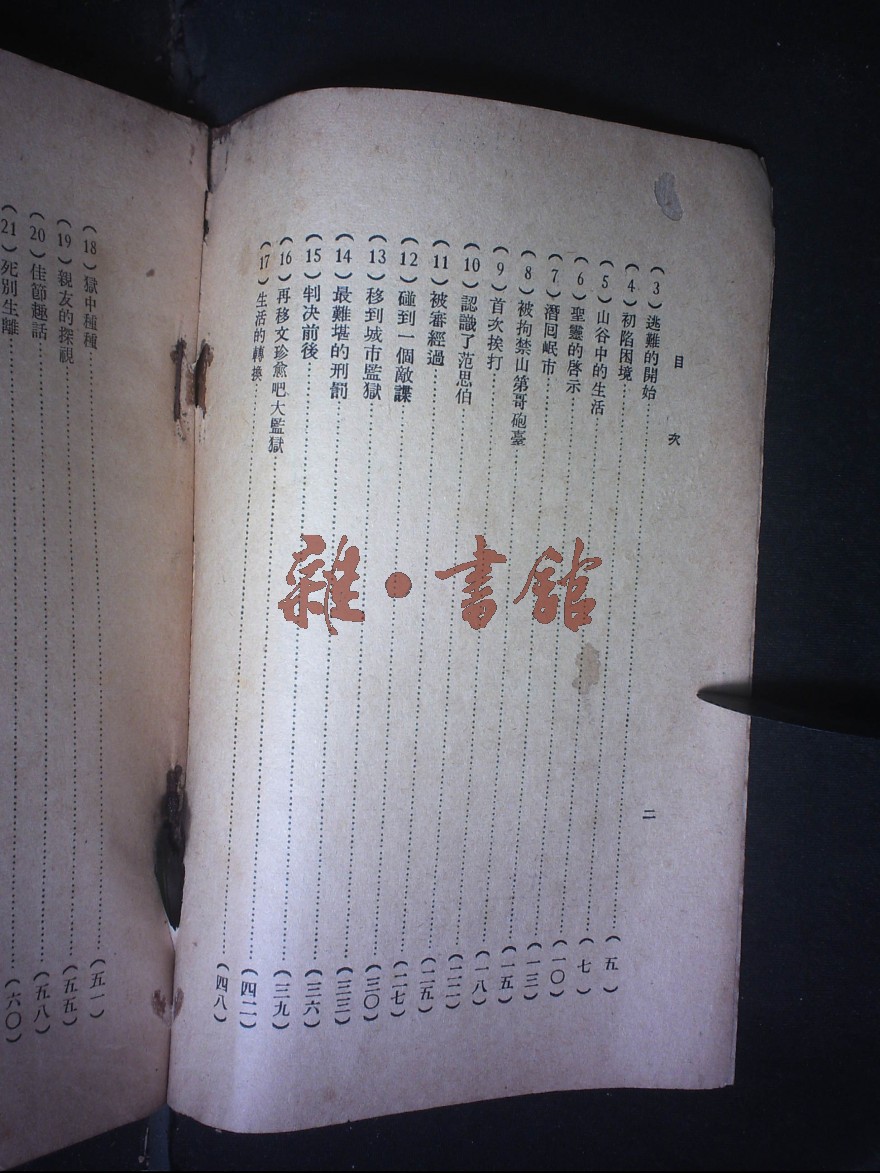 目 次 二
（3）逃難的開始……（五）
（4）初陷困境……（七）
（5）山谷中的生活……（一〇）
（6）聖靈的啓示……（一三）
（7）潛囘岷市……（一五）
（8）被拘禁山第哥砲臺……（一八）
（9）首次挨打……（二二）
（10）認識了范思伯……（二五）
（11）被審經過……（二七）
（12）碰到一個敵諜……（三〇）
（13）移到城市監獄……（三三）
（14）最難堪的刑罰……（三六）
（15）判决前後……（三九）
（16）再移文珍愈吧大監獄……（四二）
（17）生活的轉換……（四八）
（18）獄中種種……（五一）
（19）親友的探視……（五五）
（20）佳節趣話……（五八）
（21）死別生離……（六〇）
雜·書館